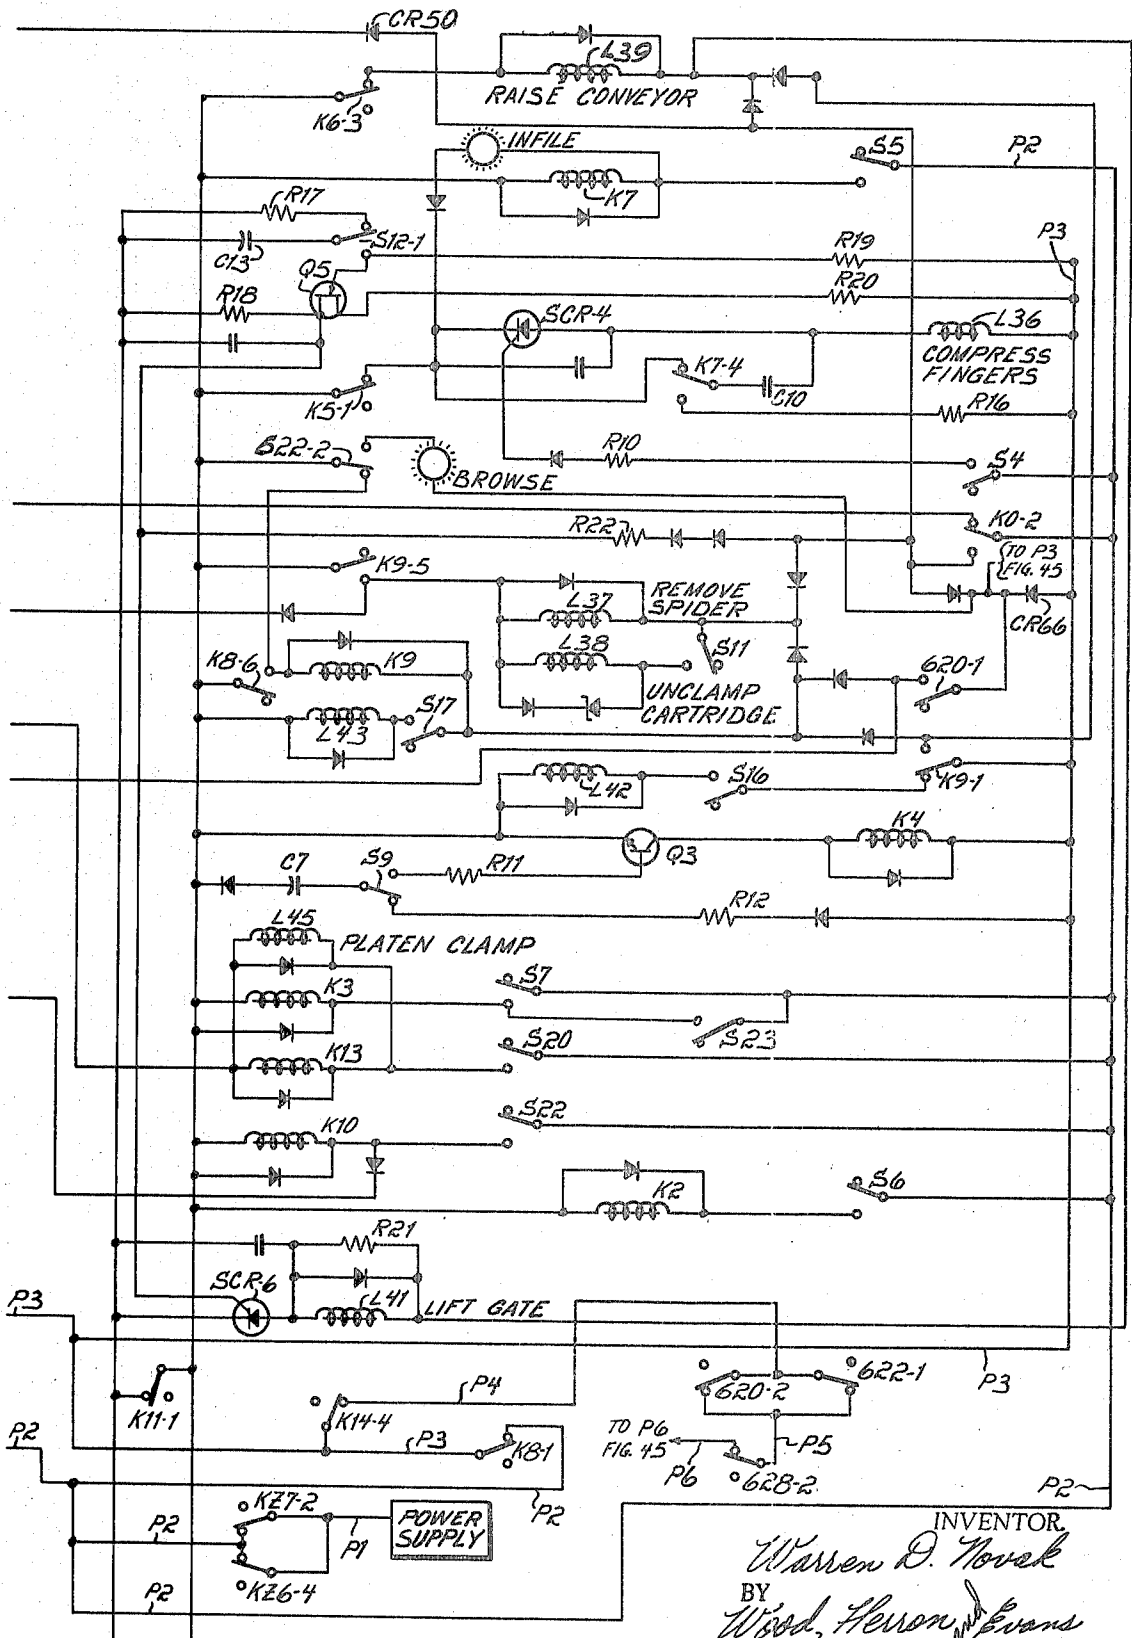 CR50
L39
RAISE CONVEYOR
K6-3
INFILE
S5
P2
K7
R17
S12-1
C13
R19
P3
Q5
R20
R18
SCR-4
L36
COMPRESS
FINGERS
K7-4
C10
K5-1
R16
S22-2
R10
S4
BROWSE
R22
K0-2
K9-5
TO P3
FIG. 45
REMOVE
SPIDER
L37
CR66
L38
S11
K8-6
K9
620-1
UNCLAMP
CARTRIDGE
S17
L43
S16
K9-1
L42
K4
Q3
C7
S9
R11
R12
L45
PLATEN CLAMP
S7
K3
S23
S20
K13
S22
K10
K2
S6
R21
SCR-6
L41
LIFT GATE
P3
P3
622-1
620-2
P4
K14-4
K11-1
P2
P3
K8-1
TO P6
FIG. 45
P5
P6
628-2
P2
KZ7-2
P2
POWER
SUPPLY
P2
P1
KZ6-4
P2
INVENTOR
Warren D. Novak
BY
Wood, Herron and Evans